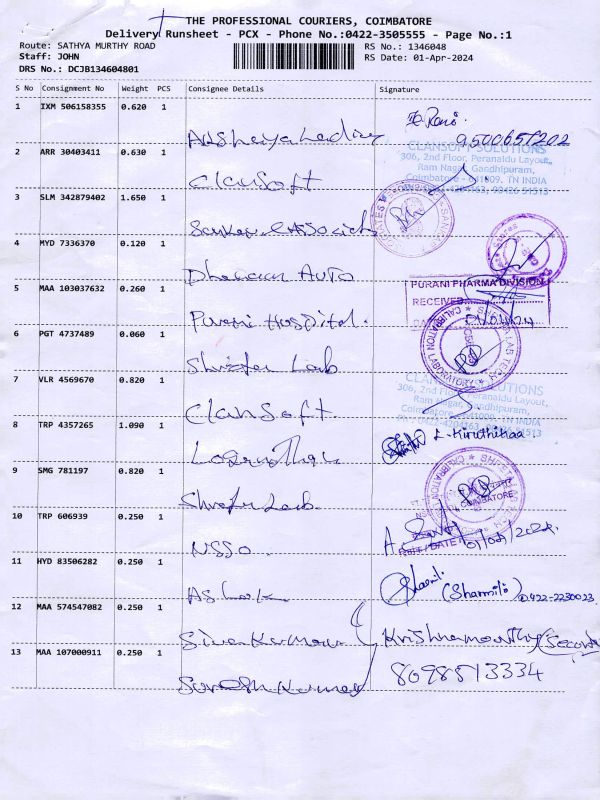 THE PROFESSIONAL COURIERS, COIMBATORE
Delivery Runsheet - PCX - Phone No.:0422-3505555 - Page No.:1
Route: SATHYA MURTHY ROAD
RS No.: 1346048
Staff: JOHN
RS Date: 01-Apr-2024
DRS No.: DCJB134604801
S No Consignment No Weight PCS Consignee Details Signature
1 IXM 506158355 0.620 1
9500657202
2 ARR 30403411 0.630 1 ClanSoft
CLANSOFT SOLUTIONS
306, 2nd Floor, Peranaidu Layout,
Ram Nagar, Gandhipuram,
Coimbatore - 641009. TN INDIA
3 SLM 342879402 1.650 1
4 MYD 7336370 0.120 1 Auto
5 MAA 103037632 0.260 1 Purani Hospital.
PURANI PHARMA DIVISION
RECEIVED
6 PGT 4737489 0.060 1 Lab
CALIBRATION LABORATORY
7 VLR 4569670 0.820 1 ClanSoft
CLANSOFT SOLUTIONS
306, 2nd Floor, Peranaidu Layout,
Ram Nagar, Gandhipuram,
8 TRP 4357265 1.090 1
L. Kiruthikaa
9 SMG 781197 0.820 1 Lab
COIMBATORE
10 TRP 606939 0.250 1 NSSO
11 HYD 83506282 0.250 1 Ashok
(Sharmila) 0422-2230023
12 MAA 574547082 0.250 1 Sivakumar
Krishnamoorthy
13 MAA 107000911 0.250 1 Suresh Kumar
8098513334